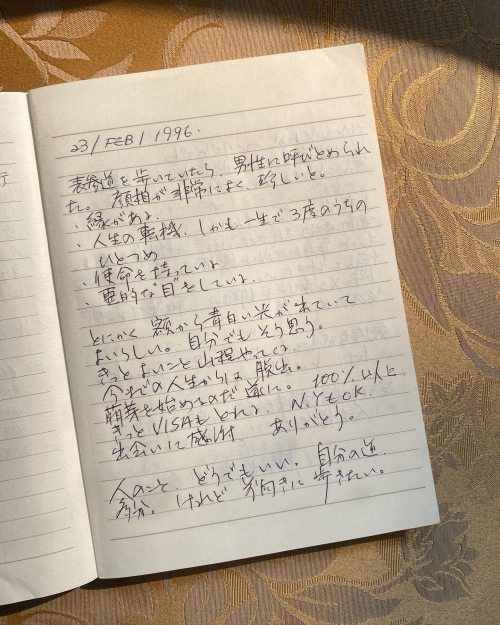 23 / FEB / 1996.
表参道を歩いていたら、男性に呼びとめられ
た。顔相が非常によく、珍しいと。
・縁がある。
・人生の転機、しかも一生で3度のうちの
ひとつめ
・使命を持っている
・霊的な目をしている。
とにかく額から青白い光が出ていて
よいらしい。自分でもそう思う。
きっとよいこと山程やってくる
今までの人生からは脱出。
萌芽を始めるのだ 遂に。100%以上
きっとVISAもとれる、N.YもOK.
出会いに感謝 ありがとう。
人のこと、どうでもいい。自分の道
多分。けれど 前向きに歩きたい。
行